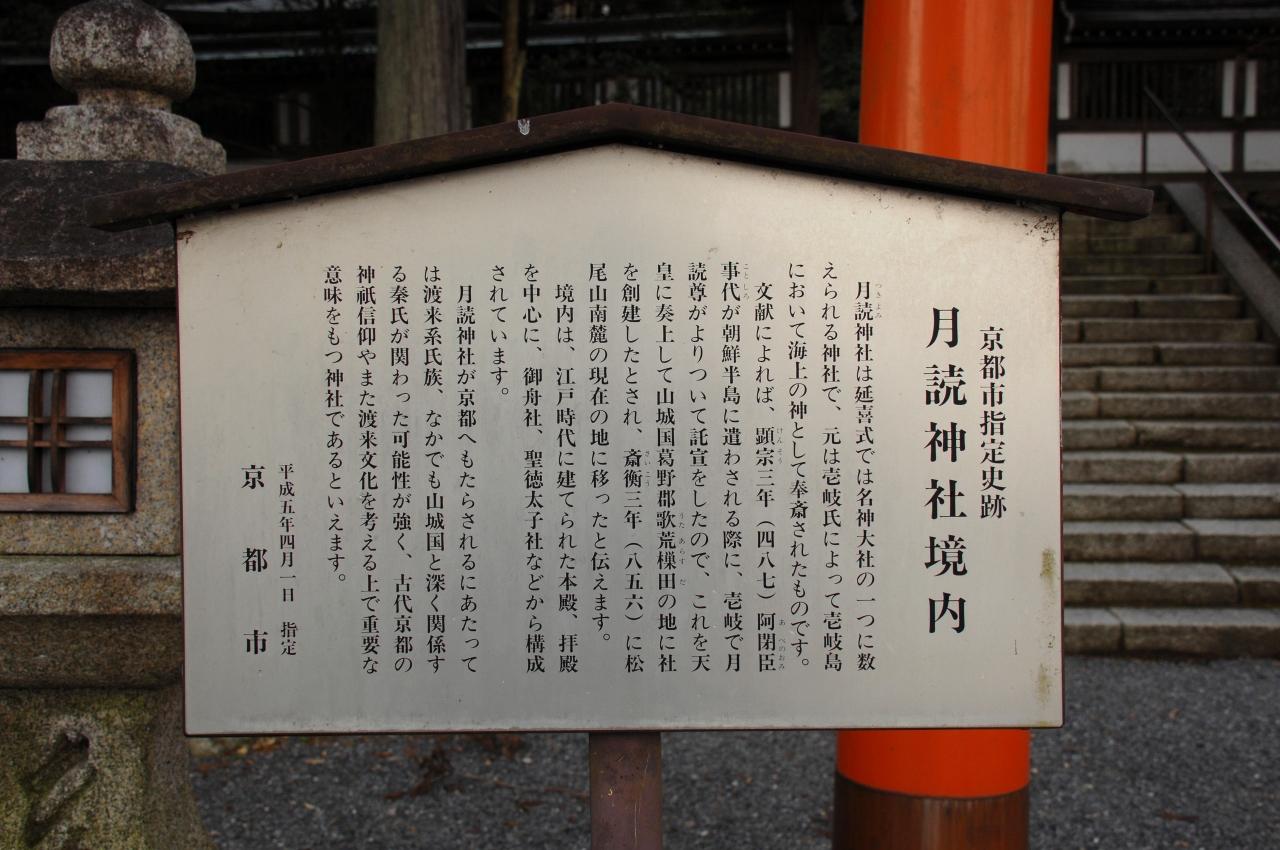 京都市指定史跡
月読神社境内
月読神社は延喜式では名神大社の一つに数
えられる神社で、元は壱岐氏によって壱岐島
において海上の神として奉斎されたものです。
文献によれば、顕宗三年(四八七)阿閉臣
事代が朝鮮半島に遣わされる際に、壱岐で月
読尊がよりついて託宣をしたので、これを天
皇に奏上して山城国葛野郡歌荒樔田の地に社
を創建したとされ、斎衡三年(八五六)に松
尾山南麓の現在の地に移ったと伝えます。
境内は、江戸時代に建てられた本殿、拝殿
を中心に、御舟社、聖徳太子社などから構成
されています。
月読神社が京都へもたらされるにあたって
は渡来系氏族、なかでも山城国と深く関係す
る秦氏が関わった可能性が強く、古代京都の
神祇信仰やまた渡来文化を考える上で重要な
意味をもつ神社であるといえます。
平成五年四月一日 指定
京都市